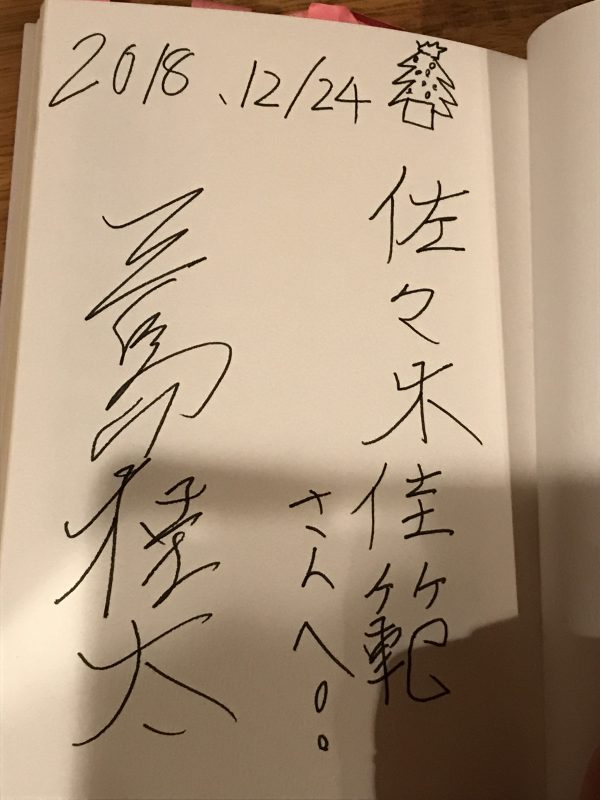 2018、12/24
佐々木佳範
さんへ！
三島桂太